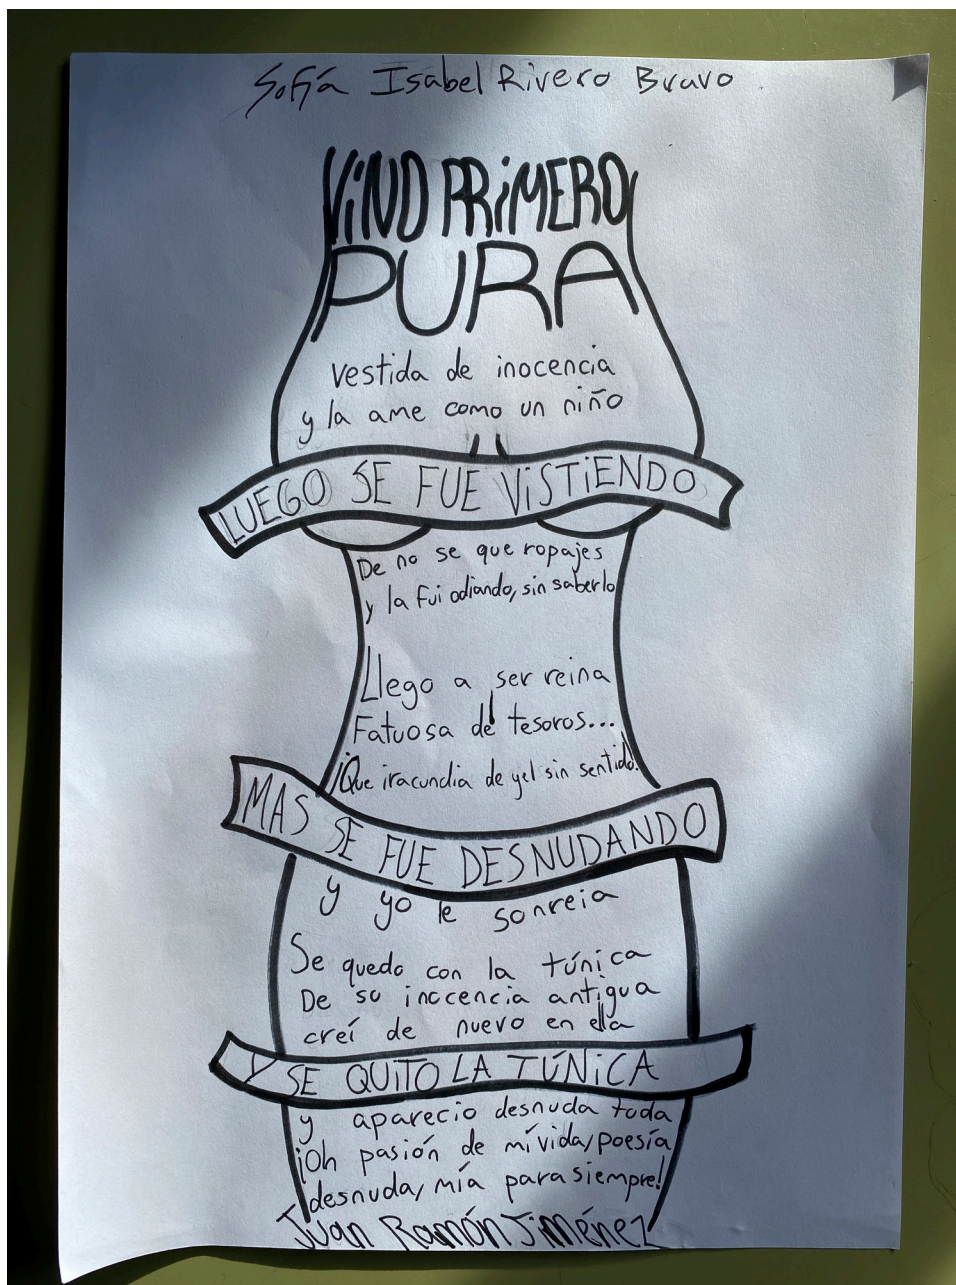 Sofía Isabel Rivero Bravo
ViNO PRiMERO
PURA
vestida de inocencia
y la ame como un niño
LUEGO SE FUE ViSTiENDO
De no se que ropajes
y la fui odiando, sin saberlo
Llego a ser reina
Fatuosa de tesoros...
¡Que iracundia de yel sin sentido!
MAS SE FUE DESNUDANDO
y yo le sonreia
Se quedo con la túnica
De su inocencia antigua
creí de nuevo en ella
Y SE QUiTO LA TÚNiCA
y aparecio desnuda toda
¡Oh pasión de mí vida, poesía
desnuda, mía para siempre!
Juan Ramón Jiménez